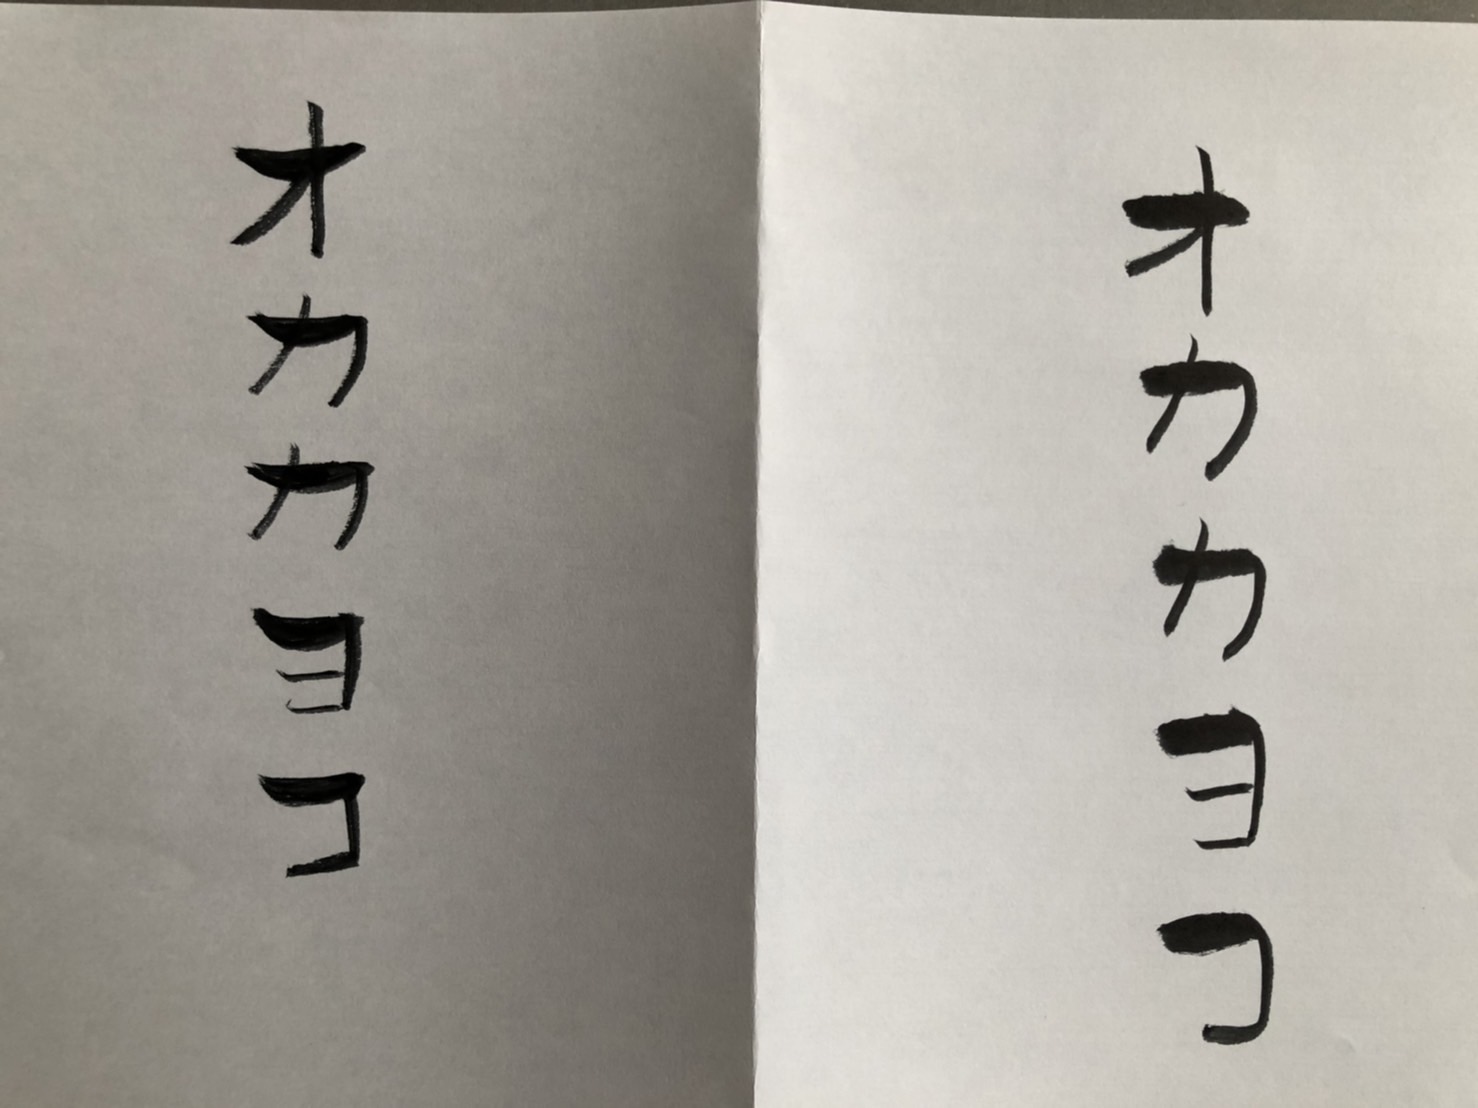 オカカヨコ
オカカヨコ